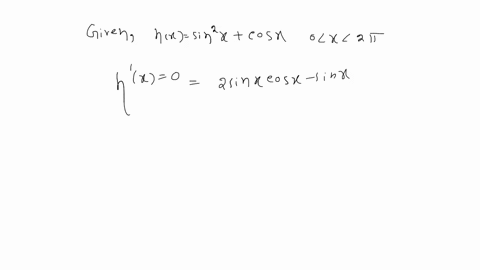 Given, h(x)=sin²x + cosx 0<x<2π
h'(x)=0 = 2sinx cosx - sinx